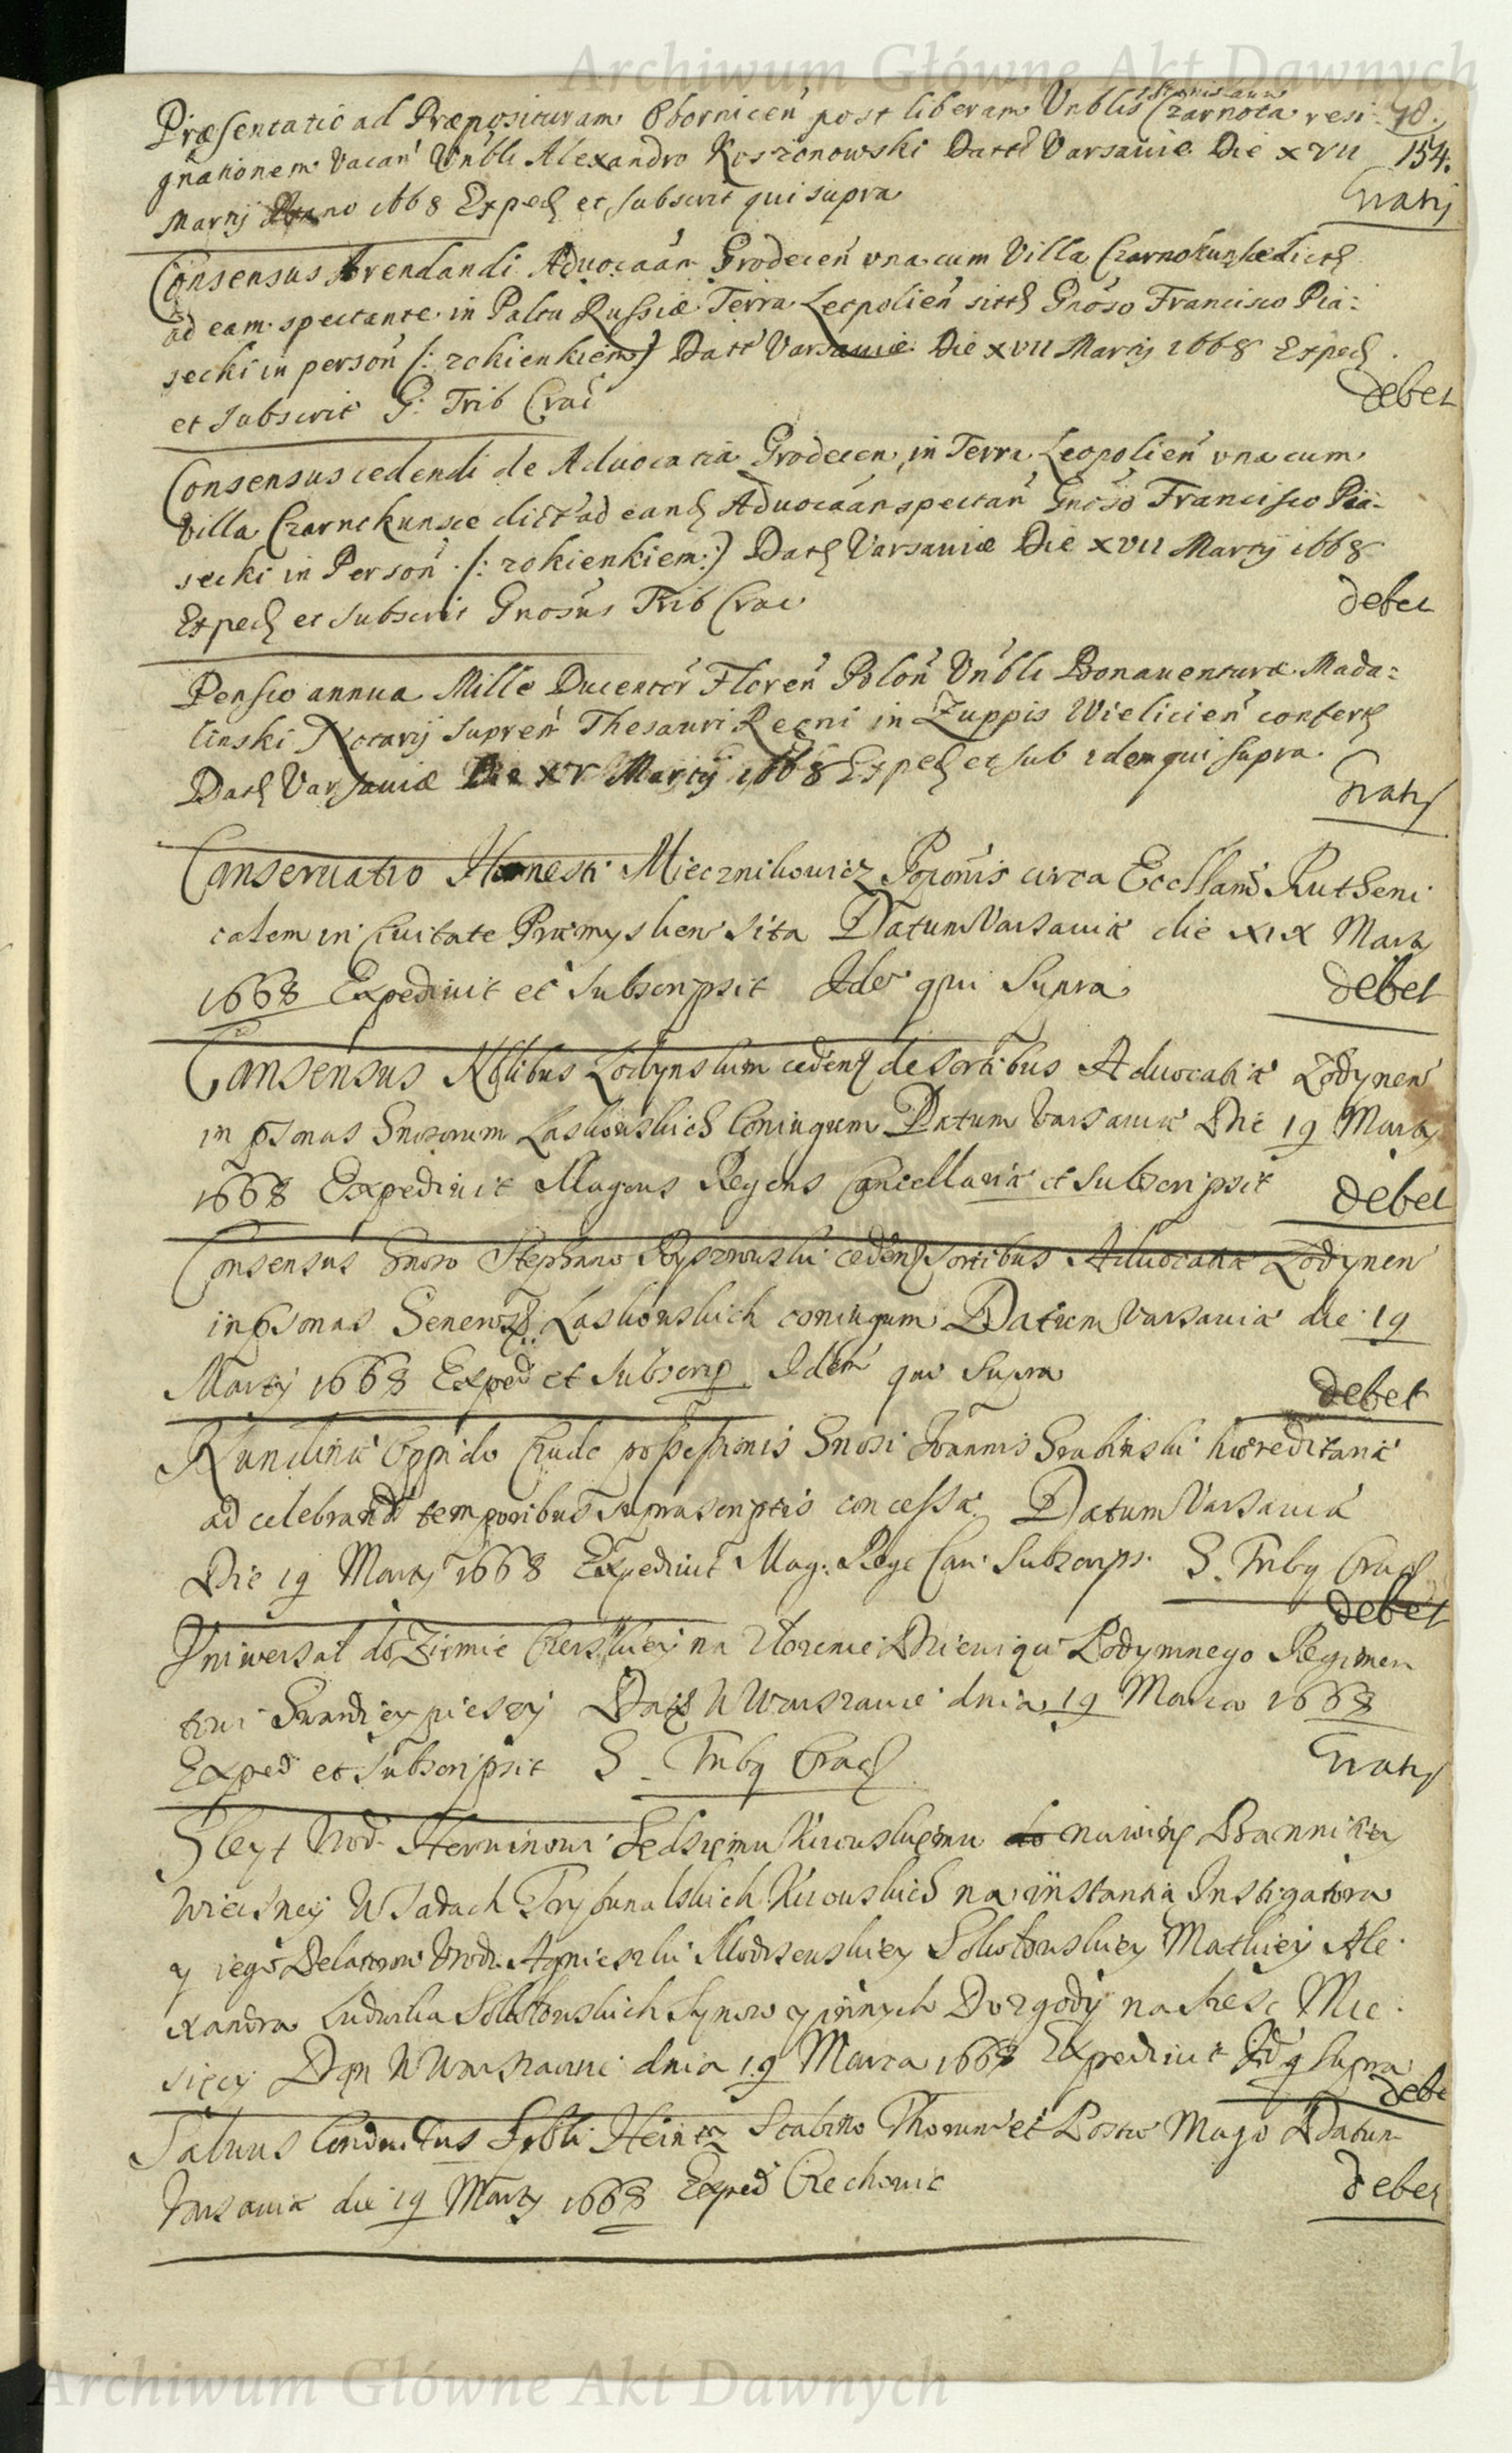 Archiwum Główne Akt Dawnych
Præsentatio ad Præposituram Obornicen post liberam Vnblis Stanislaum Czarnota resi- 70.
gnationem Vacan Vnbli Alexandro Koszonowski Datt Varsaviæ Die XVII 154.
Martij Anno 1668 Exped et subscrit qui supra Gratis
Consensus Arendandi Aduocaãm Grodecen vna cum Villa Czarnokunhe dictę
ad eam spectante in Paltu Russiæ Terra Leopolien sittę Gnõso Francisco Pia-
secki in person (: zokienkiem:) Datt Varsauiæ Die XVII Martij 1668 Exped
et subscrit G: Trib Crac debet
Consensus cedendi de Aduocatia Grodecen in Terra Leopolien vna cum
Villa Czarnekunsce dict ad eand Aduocaãm spectan Gnõso Francisco Pia-
secki in Person (: zokienkiem:) Dat Varsauiæ Die XVII Martij 1668
Exped et subscrit Gnosus Trib Crac debet
Pensio annua Mille Ducentor Floren Polon Vnbli Bonauenturæ Mada-
linski Notarij supren Thesauri Regni in Zuppis Wielicien confert
Dat Varsauiæ Die XV Martij 1668 Exped et sub idem qui supra. Gratis
Conseruatio Honesti Miecznikowicz Poponis circa Ecclam Rutheni
calem in Ciuitate Præmyslien sita Datum Varsauiæ die XIX Martij
1668 Expediuit et subscripsit Idē qui supra debet
Consensus Nblibus Lodynskim cedend de sortibus Aduocatiæ Lodynen
in psonas Gnosorum Laskowskich Coniugum Datum Varsauiæ Die 19 Martij
1668 Expediuit Magcus Regens Cancellariæ et subscripsit debet
Consensus Gnoso Stephano Ryszkowski cedend sortibus Aduocatiæ Lodynen
in psonas Generos Laskowskich coniugum Datum Varsauiæ die 19
Martij 1668 Exped et subscrip Idem qui supra debet
Nundinæ Oppido Crude possessionis Gnosi Joannis Grabinski hæreditariæ
ad celebrand temporibus suprascriptis concessæ Datum Varsauiæ
Die 19 Martij 1668 Expediuit Mag. Rege Can. Subscrips. G. Trib Crac
debet
Vniwersał do Ziemie Czerskiey na złozenie Dzieniąci Podymnego Regimen
towi Gwardiey pieszey Dat w Warszawie dnia 19 Marca 1668
Exped et subscripsit G. Trib Crac Gratis
Gleyt Vrod. Herminowi Sedzięmu Kiiowskięmu do nawiny Bannitiey
wieczney w Sadach Trybunalskich Kiiowskich na instantią Instigatora
y iego Delatorow Vrod. Agnieszki Modrzewskiey Sokołowskiey Matkiey Ale-
xandra Ludwika Sokołowskich Synow y innych Do zgody na szesc Mie-
sięcy Dan w Warszawie dnia 19 Marca 1668 Expediuit Id q supra
debe
Saluus Conductus Spbli Heintz Scabino Thorun et Postæ Mago Datum
Varsauiæ die 19 Martij 1668 Exped Czechowic debet
Archiwum Główne Akt Dawnych